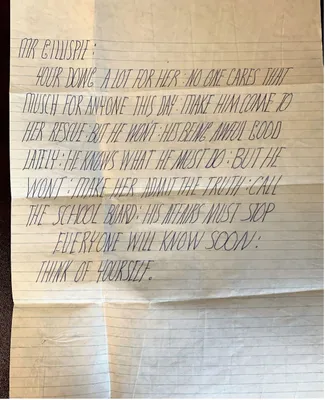 MR GILLISPIE:
YOUR DOING A LOT FOR HER: NO ONE CARES THAT
MUSCH FOR ANYONE THIS DAY: MAKE HIM COME TO
HER RESCUE: BUT HE WON'T: HIS BEING AWFUL GOOD
LATELY: HE KNOWS WHAT HE MUST DO: BUT HE
WON'T: MAKE HER ADMIT THE TRUTH: CALL
THE SCHOOL BOARD: HIS AFFAIRS MUST STOP
EVERYONE WILL KNOW SOON:
THINK OF YOURSELF.